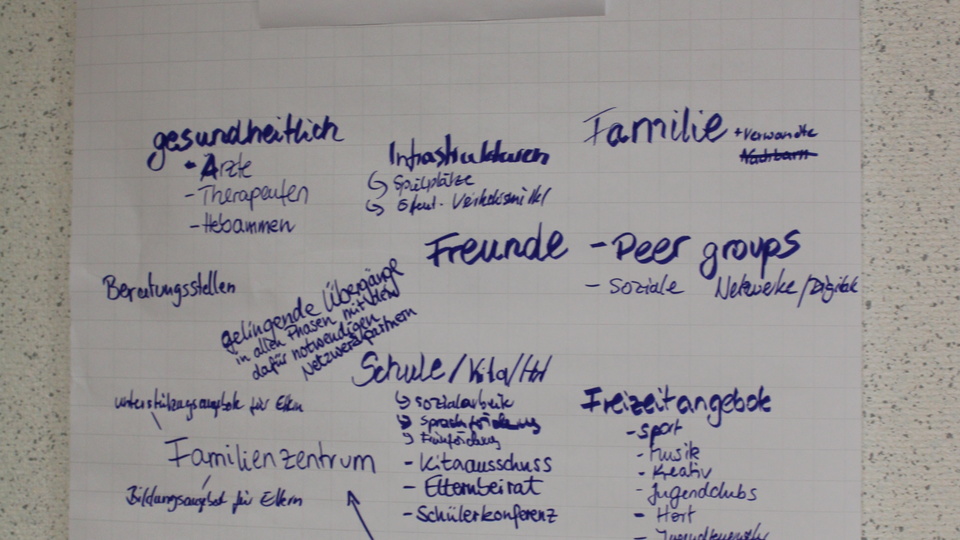 gesundheitlich
- Ärzte
- Therapeuten
- Hebammen
Infrastrukturen
Spielplätze
Öfentl. Verkehrsmittel
Familie + Verwandte
Nachbarn
Freunde - Peer groups
- Soziale Netzwerke/Digitale
Beratungsstellen
gelingende Übergänge
in allen Phasen mit den
dafür notwendigen
Netzwerkpartnern
Schule/Kita/Hort
Sozialarbeit
Sprachförderung
Frühförderung
- Kitaausschuss
- Elternbeirat
- Schülerkonferenz
unterstützungsangebote für Eltern
Familienzentrum
Bildungsangebot für Eltern
Freizeitangebote
- Sport
- Musik
- Kreativ
- Jugendclubs
- Hort